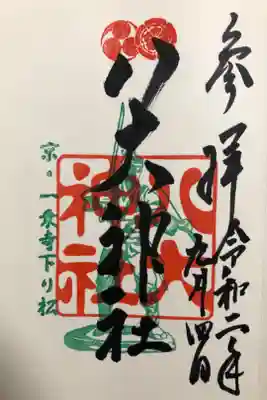 參拝
令和二年
九月四日
八大神社
八大
神社
京の一乗寺下り松